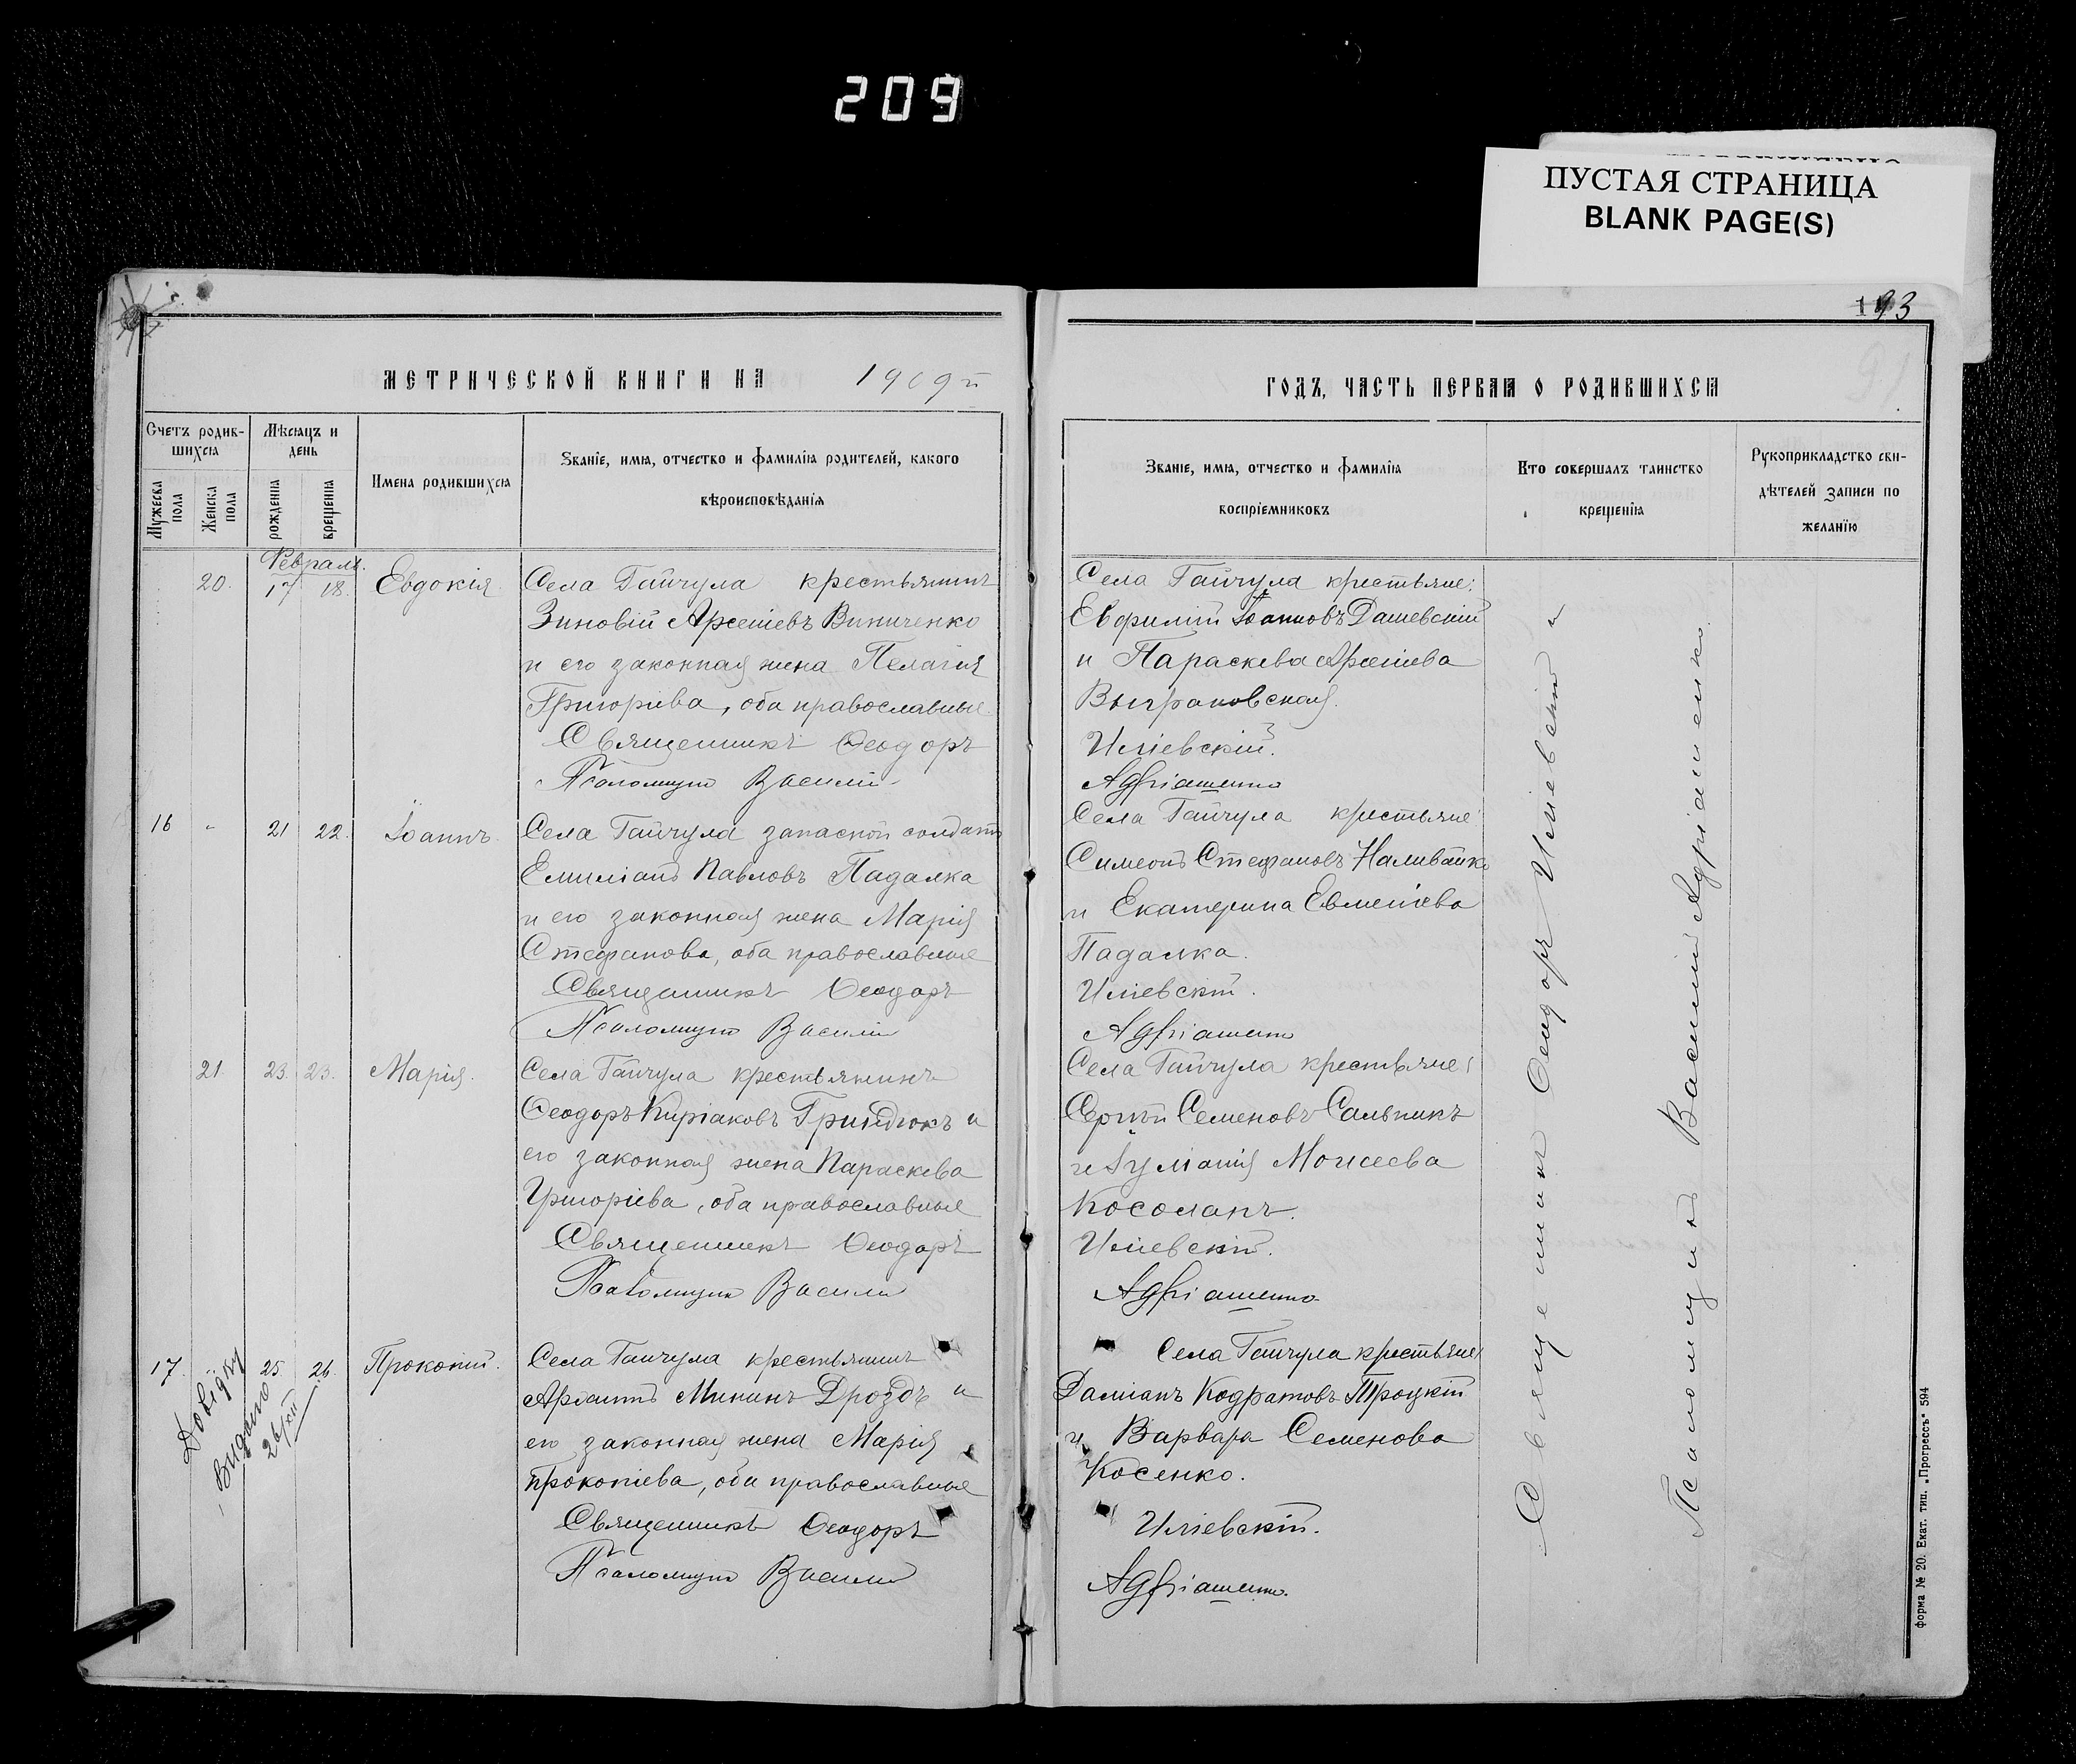 209
ПУСТАЯ СТРАНИЦА
BLANK PAGE(S)
193
91
МЕТРИЧЕСКОЙ КНИГИ НА 1909й
ГОДЪ, ЧАСТЬ ПЕРВАЯ О РОДИВШИХСЯ
Счетъ родив-
шихся
Мужеска
пола
Женска
пола
Мѣсяцъ и
день
рожденія
крещенія
Имена родившихся
Званіе, имя, отчество и фамилія родителей, какого
вѣроисповѣданія
Званіе, имя, отчество и фамилія
воспріемниковъ
Кто совершалъ таинство
крещенія
Рукоприкладство сви-
дѣтелей записи по
желанію
Февраль.
20. 17 18. Евдокія
Села Гайчула крестьянинъ
Зиновій Арсеніевъ Виниченко
и его законная жена Пелагія
Григоріева, оба православные.
Священникъ Ѳеодоръ
Псаломщикъ Василій
Села Гайчула крестьяне:
Евфимій Іоанновъ Дашевскій
и Параскева Арсеніева
Выграновская.
Иліевскій.
Адріашенко
16 " 21 22. Іоаннъ.
Села Гайчула запасной солдатъ
Емиліанъ Павловъ Падалка
и его законная жена Марія
Стефанова, оба православные
Священникъ Ѳеодоръ
Псаломщикъ Василій
Села Гайчула крестьяне
Симеонъ Стефановъ Наливайко
и Екатерина Евменіева
Падалка.
Иліевскій.
Адріашенко
21. 23. 23. Марія.
Села Гайчула крестьянинъ
Ѳеодоръ Киріаковъ Гриндюкъ и
его законная жена Параскева
Григоріева, оба православные
Священникъ Ѳеодоръ
Псаломщикъ Василій
Села Гайчула крестьяне:
Сергѣй Семеновъ Сальникъ
и Іуліанія Моисеева
Косолапъ.
Иліевскій.
Адріашенко
17. 25. 26. Прокопій.
Довідку
видано
26/XII
Села Гайчула крестьянинъ
Мининъ Дроздъ и
его законная жена Марія
Прокопіева, оба православные
Священникъ Ѳеодоръ
Псаломщикъ Василій
Села Гайчула крестьяне:
Даміанъ Кодратовъ Троцкій
и Варвара Семенова
Косенко.
Иліевскій.
Адріашенко.
Священникъ Ѳеодоръ Иліевскій и
Псаломщикъ Василій Адріашенко.
форма № 20. Екат. тип. „Прогрессъ“ 594